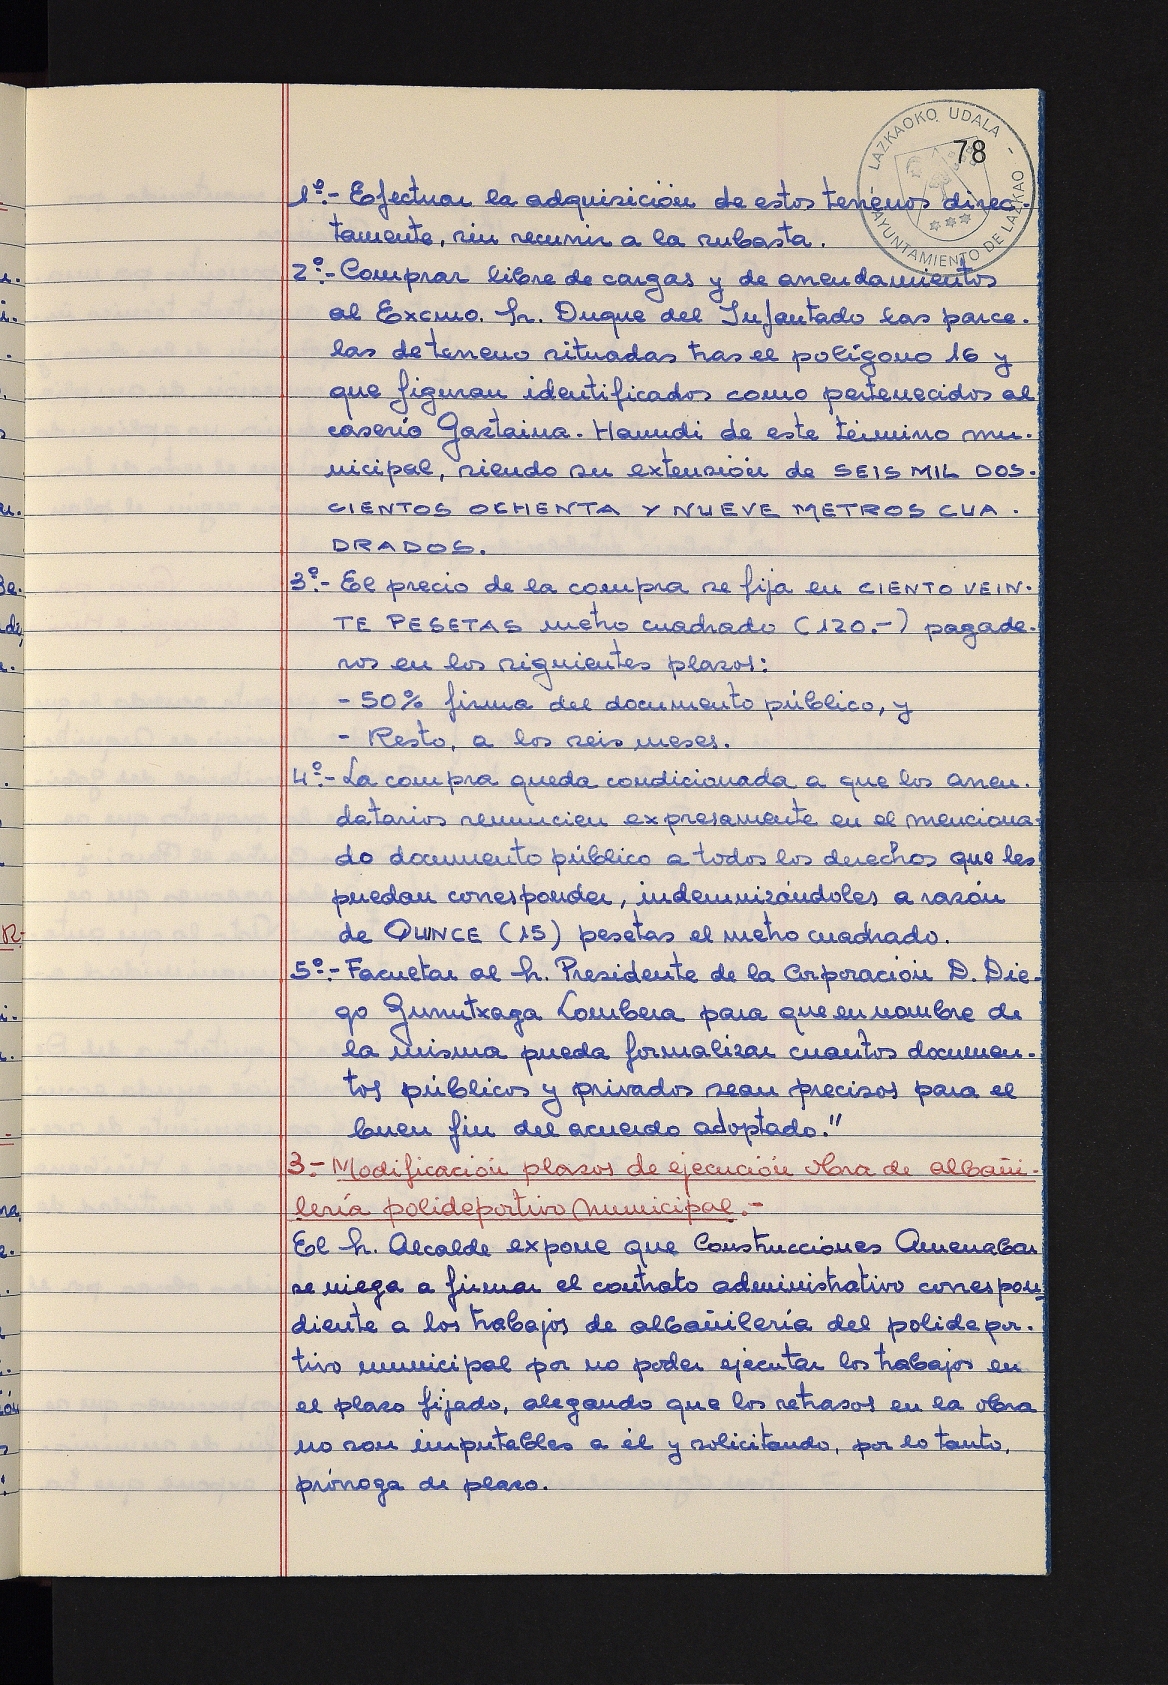 LAZKAOKO UDALA - AYUNTAMIENTO DE LAZKAO -
78
1º.- Efectuar la adquisición de estos terrenos direc-
tamente, sin recurrir a la subasta.
2º.- Comprar libre de cargas y de arrendamientos
al Excmo. Sr. Duque del Infantado las parce-
las de terreno situadas tras el polígono 16 y
que figuran identificados como pertenecidos al
caserío Gaztaina-Haundi de este término mu-
nicipal, siendo su extensión de SEIS MIL DOS-
CIENTOS OCHENTA Y NUEVE METROS CUA-
DRADOS.
3º.- El precio de la compra se fija en CIENTO VEIN-
TE PESETAS metro cuadrado (120.-) pagade-
ros en los siguientes plazos:
- 50% firma del documento público, y
- Resto, a los seis meses.
4º.- La compra queda condicionada a que los arren-
datarios renuncien expresamente en el menciona-
do documento público a todos los derechos que les
puedan corresponder, indemnizándoles a razón
de QUINCE (15) pesetas el metro cuadrado.
5º.- Facultar al Sr. Presidente de la Corporación D. Die-
go Gurrutxaga Lombera para que en nombre de
la misma pueda formalizar cuantos documen-
tos públicos y privados sean precisos para el
buen fin del acuerdo adoptado."
3.- Modificación plazos de ejecución obra de albañi-
lería polideportivo municipal.-
El Sr. Alcalde expone que Construcciones Amenabar
se niega a firmar el contrato administrativo correspon-
diente a los trabajos de albañilería del polidepor-
tivo municipal por no poder ejecutar los trabajos en
el plazo fijado, alegando que los retrasos en la obra
no son imputables a él y solicitando, por lo tanto,
prórroga de plazo.